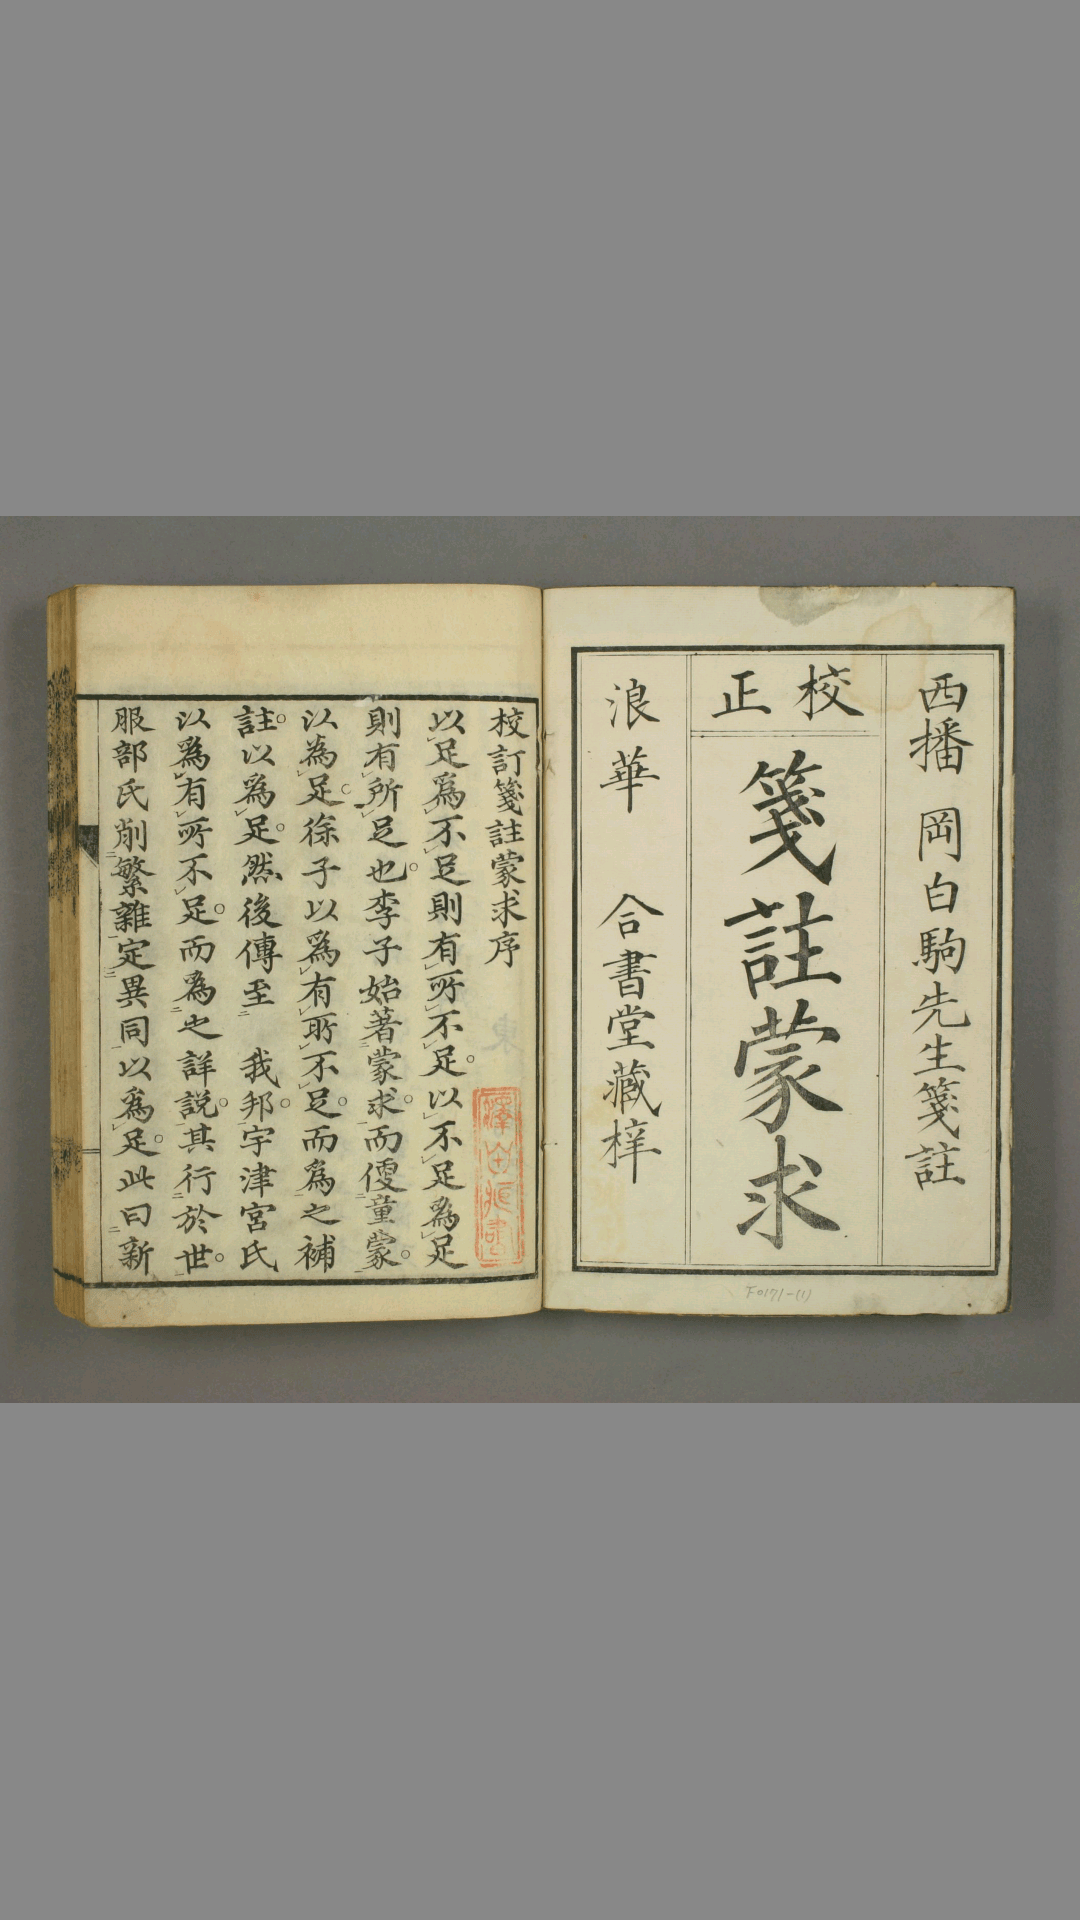 西播 岡白駒先生箋註
校正
箋註蒙求
浪華 合書堂藏梓
F0171-(1)
校訂箋註蒙求序
以足爲不足則有所不足。以不足爲足
則有所足也。李子始著蒙求。而便童蒙。
以爲足。徐子以爲有所不足。而爲之補
註。以爲足。然後傳至 我邦。宇津宮氏
以爲有所不足。而爲之詳説。其行於世。
服部氏削繁雜定異同以爲足。此曰新